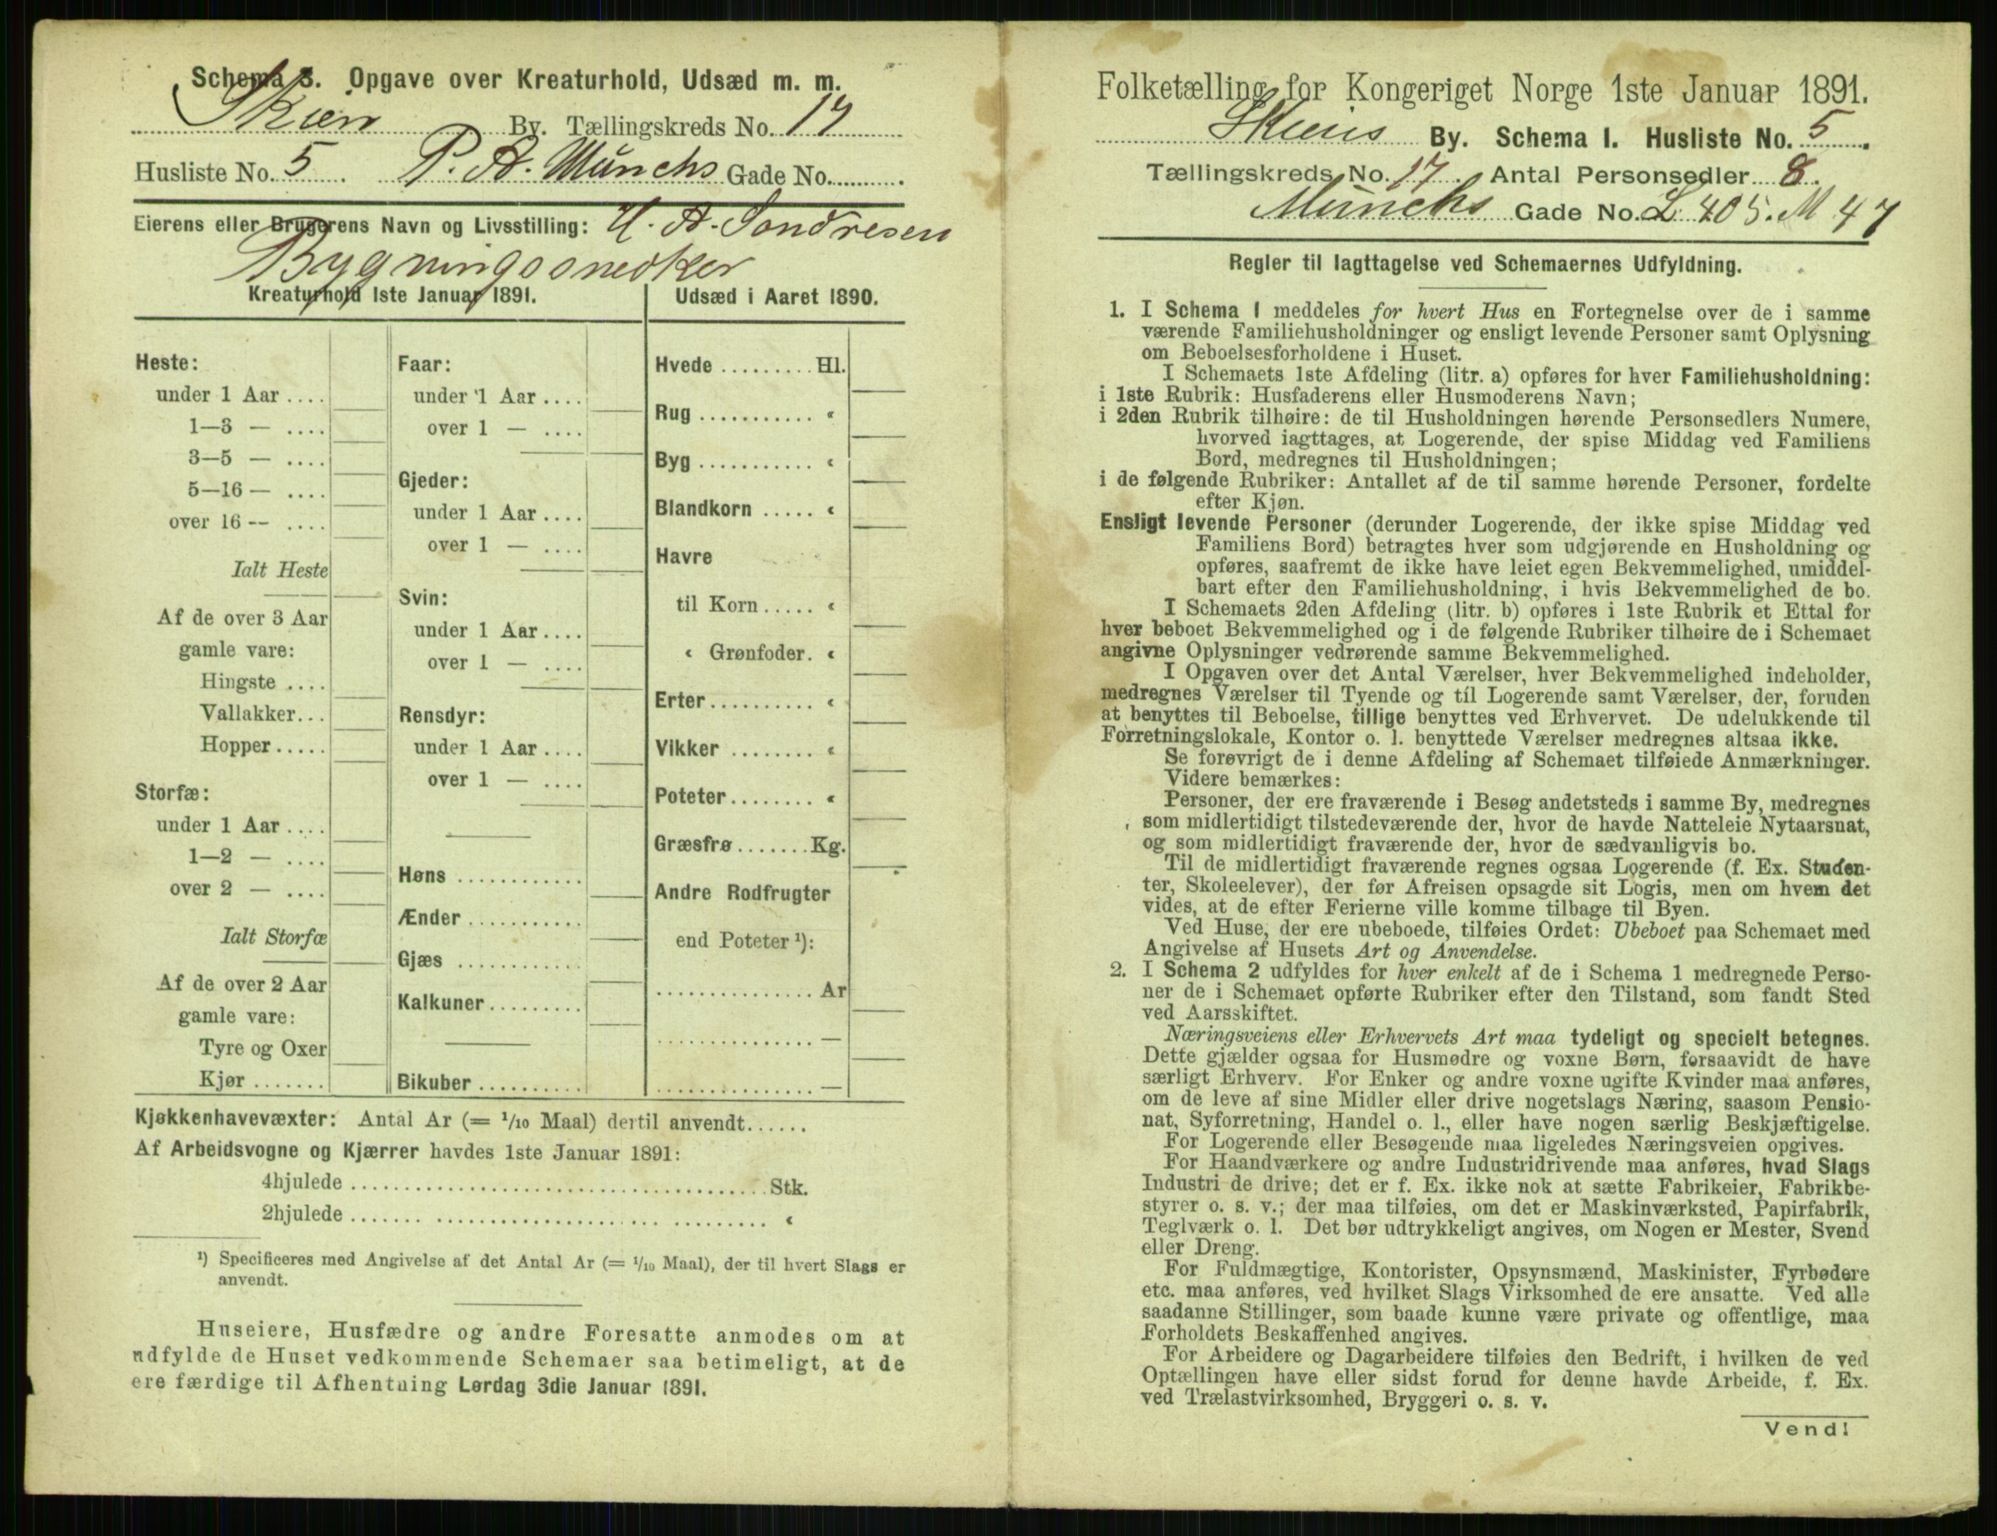 Schema 3. Opgave over Kreaturhold, Udsæd m. m.
Skien By. Tællingskreds No. 17
Husliste No. 5 P. A. Munchs Gade No.
Eierens eller Brugerens Navn og Livsstilling: H. A. Sondresen
Bygningssnedker
Kreaturhold 1ste Januar 1891.
Heste:
under 1 Aar ....
1—3 — ....
3—5 — ....
5—16 — ....
over 16 — ....
Ialt Heste
Af de over 3 Aar
gamle vare:
Hingste ....
Vallakker...
Hopper.....
Storfæ:
under 1 Aar ....
1—2 — ....
over 2 — ....
Ialt Storfæ
Af de over 2 Aar
gamle vare:
Tyre og Oxer
Kjør .......
Faar:
under 1 Aar ....
over 1 — ....
Gjeder:
under 1 Aar ....
over 1 — ....
Svin:
under 1 Aar ....
over 1 — ....
Rensdyr:
under 1 Aar ....
over 1 — ....
Høns ............
Ænder ...........
Gjæs ............
Kalkuner.........
Bikuber ..........
Udsæd i Aaret 1890.
Hvede ......... Hl.
Rug ........... «
Byg ........... «
Blandkorn ..... «
Havre
til Korn ..... «
« Grønfoder. «
Erter.......... «
Vikker ........ «
Poteter........ «
Græsfrø ....... Kg.
Andre Rodfrugter
end Poteter ¹):
............... Ar
............... —
............... —
Kjøkkenhavevæxter: Antal Ar (= 1/10 Maal) dertil anvendt......
Af Arbeidsvogne og Kjærrer havdes 1ste Januar 1891:
4hjulede ........................................ Stk.
2hjulede ........................................ «
¹) Specificeres med Angivelse af det Antal Ar (= 1/10 Maal), der til hvert Slags er
anvendt.
Huseiere, Husfædre og andre Foresatte anmodes om at
udfylde de Huset vedkommende Schemaer saa betimeligt, at de
ere færdige til Afhentning Lørdag 3die Januar 1891.
Folketælling for Kongeriget Norge 1ste Januar 1891.
Skiens By. Schema I. Husliste No. 5
Tællingskreds No. 17. Antal Personsedler 8.
Munchs Gade No. L 405. M 47
Regler til Iagttagelse ved Schemaernes Udfyldning.
1. I Schema 1 meddeles for hvert Hus en Fortegnelse over de i samme
værende Familiehusholdninger og ensligt levende Personer samt Oplysning
om Beboelsesforholdene i Huset.
I Schemaets 1ste Afdeling (litr. a) opføres for hver Familiehusholdning:
i 1ste Rubrik: Husfaderens eller Husmoderens Navn;
i 2den Rubrik tilhøire: de til Husholdningen hørende Personsedlers Numere,
hvorved iagttages, at Logerende, der spise Middag ved Familiens
Bord, medregnes til Husholdningen;
i de følgende Rubriker: Antallet af de til samme hørende Personer, fordelte
efter Kjøn.
Ensligt levende Personer (derunder Logerende, der ikke spise Middag ved
Familiens Bord) betragtes hver som udgjørende en Husholdning og
opføres, saafremt de ikke have leiet egen Bekvemmelighed, umiddel-
bart efter den Familiehusholdning, i hvis Bekvemmelighed de bo.
I Schemaets 2den Afdeling (litr. b) opføres i 1ste Rubrik et Ettal for
hver beboet Bekvemmelighed og i de følgende Rubriker tilhøire de i Schemaet
angivne Oplysninger vedrørende samme Bekvemmelighed.
I Opgaven over det Antal Værelser, hver Bekvemmelighed indeholder,
medregnes Værelser til Tyende og til Logerende samt Værelser, der, foruden
at benyttes til Beboelse, tillige benyttes ved Erhvervet. De udelukkende til
Forretningslokale, Kontor o. l. benyttede Værelser medregnes altsaa ikke.
Se forøvrigt de i denne Afdeling af Schemaet tilføiede Anmærkninger.
Videre bemærkes:
Personer, der ere fraværende i Besøg andetsteds i samme By, medregnes
som midlertidigt tilstedeværende der, hvor de havde Natteleie Nytaarsnat,
og som midlertidigt fraværende der, hvor de sædvanligvis bo.
Til de midlertidigt fraværende regnes ogsaa Logerende (f. Ex. Studen-
ter, Skoleelever), der før Afreisen opsagde sit Logis, men om hvem det
vides, at de efter Ferierne ville komme tilbage til Byen.
Ved Huse, der ere ubeboede, tilføies Ordet: Ubeboet paa Schemaet med
Angivelse af Husets Art og Anvendelse.
2. I Schema 2 udfyldes for hver enkelt af de i Schema 1 medregnede Perso-
ner de i Schemaet opførte Rubriker efter den Tilstand, som fandt Sted
ved Aarsskiftet.
Næringsveiens eller Erhvervets Art maa tydeligt og specielt betegnes.
Dette gjælder ogsaa for Husmødre og voxne Børn, forsaavidt de have
særligt Erhverv. For Enker og andre voxne ugifte Kvinder maa anføres,
om de leve af sine Midler eller drive nogetslags Næring, saasom Pensio-
nat, Syforretning, Handel o. l., eller have nogen særlig Beskjæftigelse.
For Logerende eller Besøgende maa ligeledes Næringsveien opgives.
For Haandværkere og andre Industridrivende maa anføres, hvad Slags
Industri de drive; det er f. Ex. ikke nok at sætte Fabrikeier, Fabrikbe-
styrer o. s. v.; der maa tilføies, om det er Maskinværksted, Papirfabrik,
Teglværk o. l. Det bør udtrykkeligt angives, om Nogen er Mester, Svend
eller Dreng.
For Fuldmægtige, Kontorister, Opsynsmænd, Maskinister, Fyrbødere
etc. maa anføres, ved hvilket Slags Virksomhed de ere ansatte. Ved alle
saadanne Stillinger, som baade kunne være private og offentlige, maa
Forholdets Beskaffenhed angives.
For Arbeidere og Dagarbeidere tilføies den Bedrift, i hvilken de ved
Optællingen have eller sidst forud for denne havde Arbeide, f. Ex.
ved Trælastvirksomhed, Bryggeri o. s. v.
Vend!